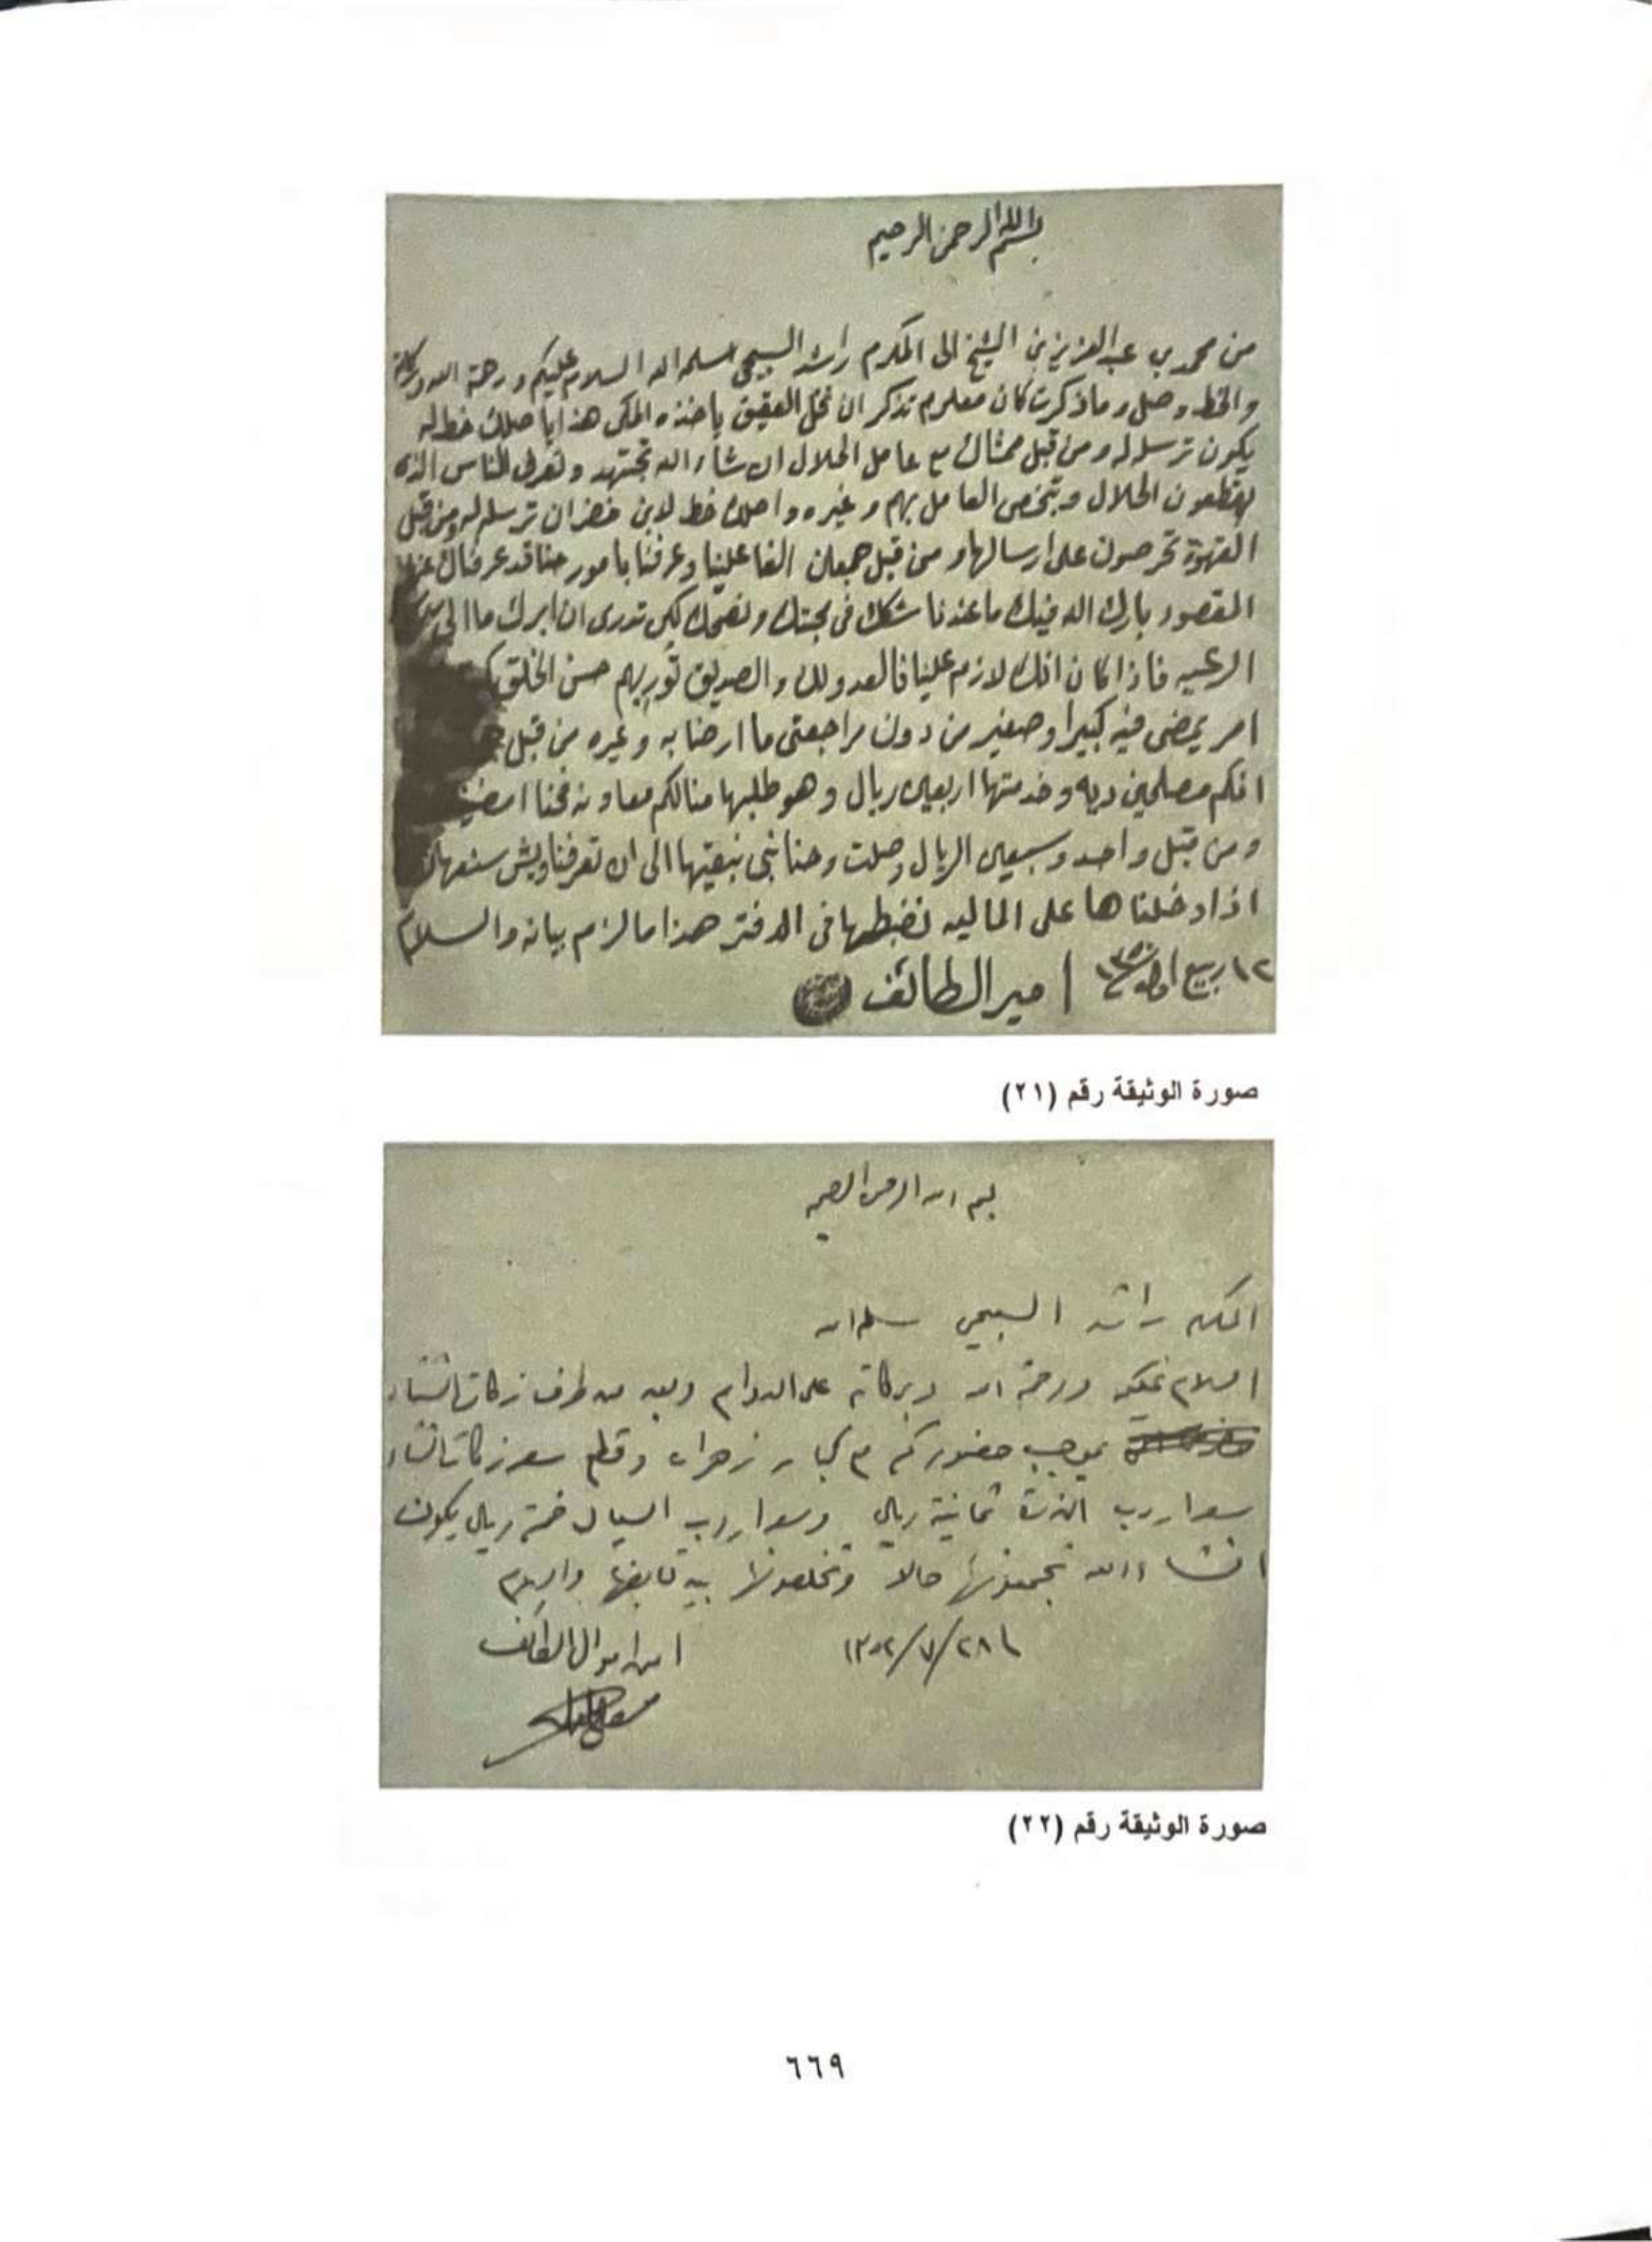 بسم الله الرحمن الرحيم
من محمد بن عبد العزيز بن الشيخ الى المكرم راشد السبيعي سلمه الله السلام عليكم ورحمة الله وبركاته
والخط وصل وما ذكرت كان معلوم تذكر ان نخل العقيق ياخذه المكي هذا يا صلك خط له
يكون ترسله له ومن قبل ممشاك مع عامل الحلال ان شاء الله تجتهد وتعرف للناس الذي
يقطعون الحلال وتبخص العامل بهم وغيره واصلك خط لابن خضران ترسله له ومن قبل
القهوة تحرصون على ارسالها ومن قبل جمعان الفا علينا وعرفنا بامور حنا قد عرفناك عنها
المقصود بارك الله فيك ما عندنا شك في محبتك ونصحك لكن تدري ان ابرك ما
الرعيه فاذا كان انك لازم علينا فالعدو لك والصديق توريهم حسن الخلق
امر يمضى فيه كبير او صغير من دون مراجعتي ما ارضا به وغيره من قبل
انكم مصلحين ديه وخدمتها اربعين ريال وهو طلبها منا لكم معاونه فحنا امضينا
ومن قبل واحد وسبعين الريال وصلت وحنا نبي نبقيها الى ان تعرفنا ويش سنعها
اذا دخلناها على الماليه نضبطها في الدفتر هذا ما لزم بيانه والسلام
١٢ ربيع اول ١٣٥٠ امير الطائف
صورة الوثيقة رقم (٢١)
بسم الله الرحمن الرحيم
المكرم راشد السبيعي سلمه الله
السلام عليكم ورحمة الله وبركاته على الدوام وبعد من طرف زكات الشتاء
بموجب حضوركم مع كبار زهران وقطع سعر زكات الشتاء
سعر اردب الذرة ثمانية ريال وسعر اردب السيال خمسة ريال يكون
انشاء الله تجمعونها حالا وتخلصونها بيد قابضها والسلام
٢٨/٧/١٣٥٢ امين اموال الطائف
صورة الوثيقة رقم (٢٢)
٦٦٩